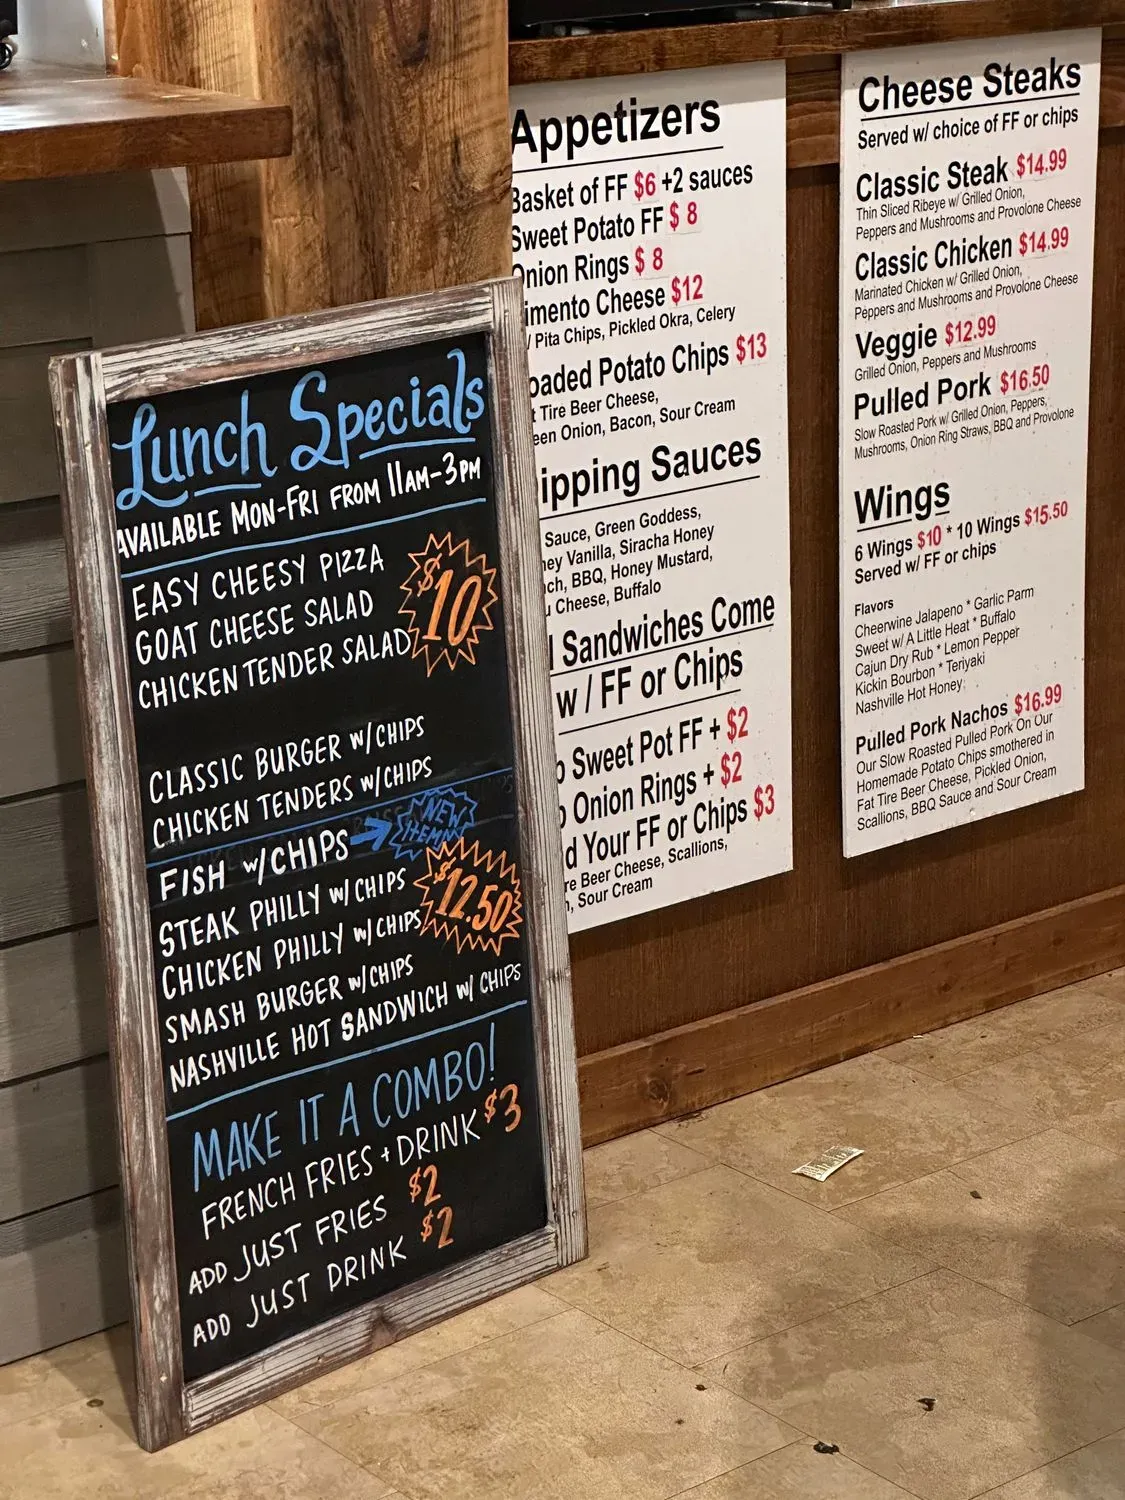 Lunch Specials
AVAILABLE MON-FRI FROM 11AM-3PM
EASY CHEESY PIZZA
GOAT CHEESE SALAD
CHICKEN TENDER SALAD
$10
CLASSIC BURGER W/CHIPS
CHICKEN TENDERS W/CHIPS
FISH W/CHIPS
NEW
ITEM
STEAK PHILLY W/CHIPS
CHICKEN PHILLY W/CHIPS
$12.50
SMASH BURGER W/CHIPS
NASHVILLE HOT SANDWICH W/ CHIPS
MAKE IT A COMBO!
FRENCH FRIES + DRINK $3
ADD JUST FRIES $2
ADD JUST DRINK $2
Appetizers
Basket of FF $6 +2 sauces
Sweet Potato FF $ 8
Onion Rings $ 8
imento Cheese $12
/ Pita Chips, Pickled Okra, Celery
oaded Potato Chips $13
t Tire Beer Cheese,
een Onion, Bacon, Sour Cream
ipping Sauces
Sauce, Green Goddess,
ey Vanilla, Siracha Honey
ch, BBQ, Honey Mustard,
Cheese, Buffalo
l Sandwiches Come
w / FF or Chips
Sweet Pot FF + $2
Onion Rings + $2
d Your FF or Chips $3
re Beer Cheese, Scallions,
, Sour Cream
Cheese Steaks
Served w/ choice of FF or chips
Classic Steak $14.99
Thin Sliced Ribeye w/ Grilled Onion,
Peppers and Mushrooms and Provolone Cheese
Classic Chicken $14.99
Marinated Chicken w/ Grilled Onion,
Peppers and Mushrooms and Provolone Cheese
Veggie $12.99
Grilled Onion, Peppers and Mushrooms
Pulled Pork $16.50
Slow Roasted Pork w/ Grilled Onion, Peppers,
Mushrooms, Onion Ring Straws, BBQ and Provolone
Wings
6 Wings $10 * 10 Wings $15.50
Served w/ FF or chips
Flavors
Cheerwine Jalapeno * Garlic Parm
Sweet w/ A Little Heat * Buffalo
Cajun Dry Rub * Lemon Pepper
Kickin Bourbon * Teriyaki
Nashville Hot Honey
Pulled Pork Nachos $16.99
Our Slow Roasted Pulled Pork On Our
Homemade Potato Chips smothered in
Fat Tire Beer Cheese, Pickled Onion,
Scallions, BBQ Sauce and Sour Cream